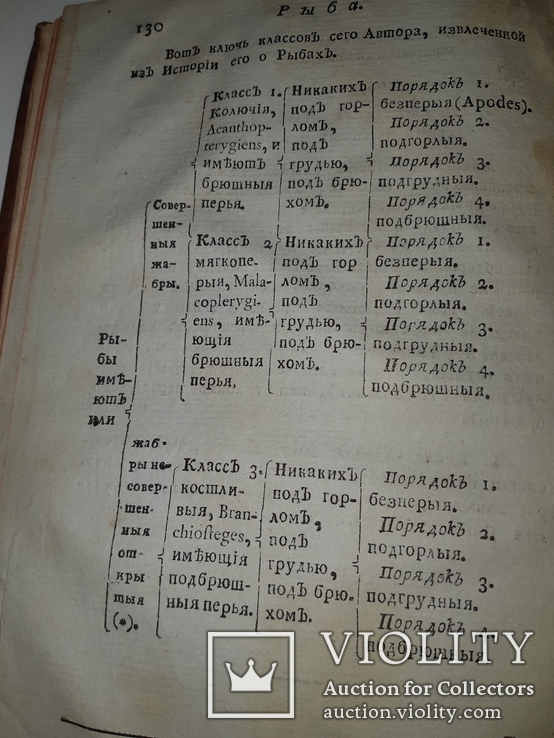 130
Рыба.
Вотъ ключь классовъ сего Автора, извлеченной
изъ Исторіи его о Рыбахъ.
Ры-
бы
имѣ-
ютъ
или
Совер-
шен-
ныя
жа-
бры.
Классъ 1.
Колючія,
Acanthop-
terygiens, и
имѣютъ
брюшныя
перья.
Никакихъ
подъ гор-
ломъ,
подъ
грудью,
подъ брю-
хомъ.
Порядокъ 1.
безперыя (Apodes).
Порядокъ 2.
подгорлыя.
Порядокъ 3.
подгрудныя.
Порядокъ 4.
подбрюшныя.
Классъ 2
мягкопе-
рыя, Mala-
coplerygi-
ens, имѣ-
ющія
брюшныя
перья.
Никакихъ
подъ гор
ломъ,
подъ
грудью,
подъ брю-
хомъ.
Порядокъ 1.
безперыя.
Порядокъ 2.
подгорлыя.
Порядокъ 3.
подгрудныя.
Порядокъ 4.
подбрюшныя.
жаб-
ры не
совер-
шен-
ныя
от-
кры
тыя
(*).
Классъ 3.
костли-
выя, Bran-
chiosteges,
имѣющія
подбрюш-
ныя перья.
Никакихъ
подъ гор-
ломъ,
подъ
грудью,
подъ брю.
хомъ.
Порядокъ 1.
безперыя.
Порядокъ 2.
подгорлыя.
Порядокъ 3.
подгрудныя.
Порядокъ 4.
подбрюшныя.
VIOLITY
Auction for Collectors
auction.violity.com